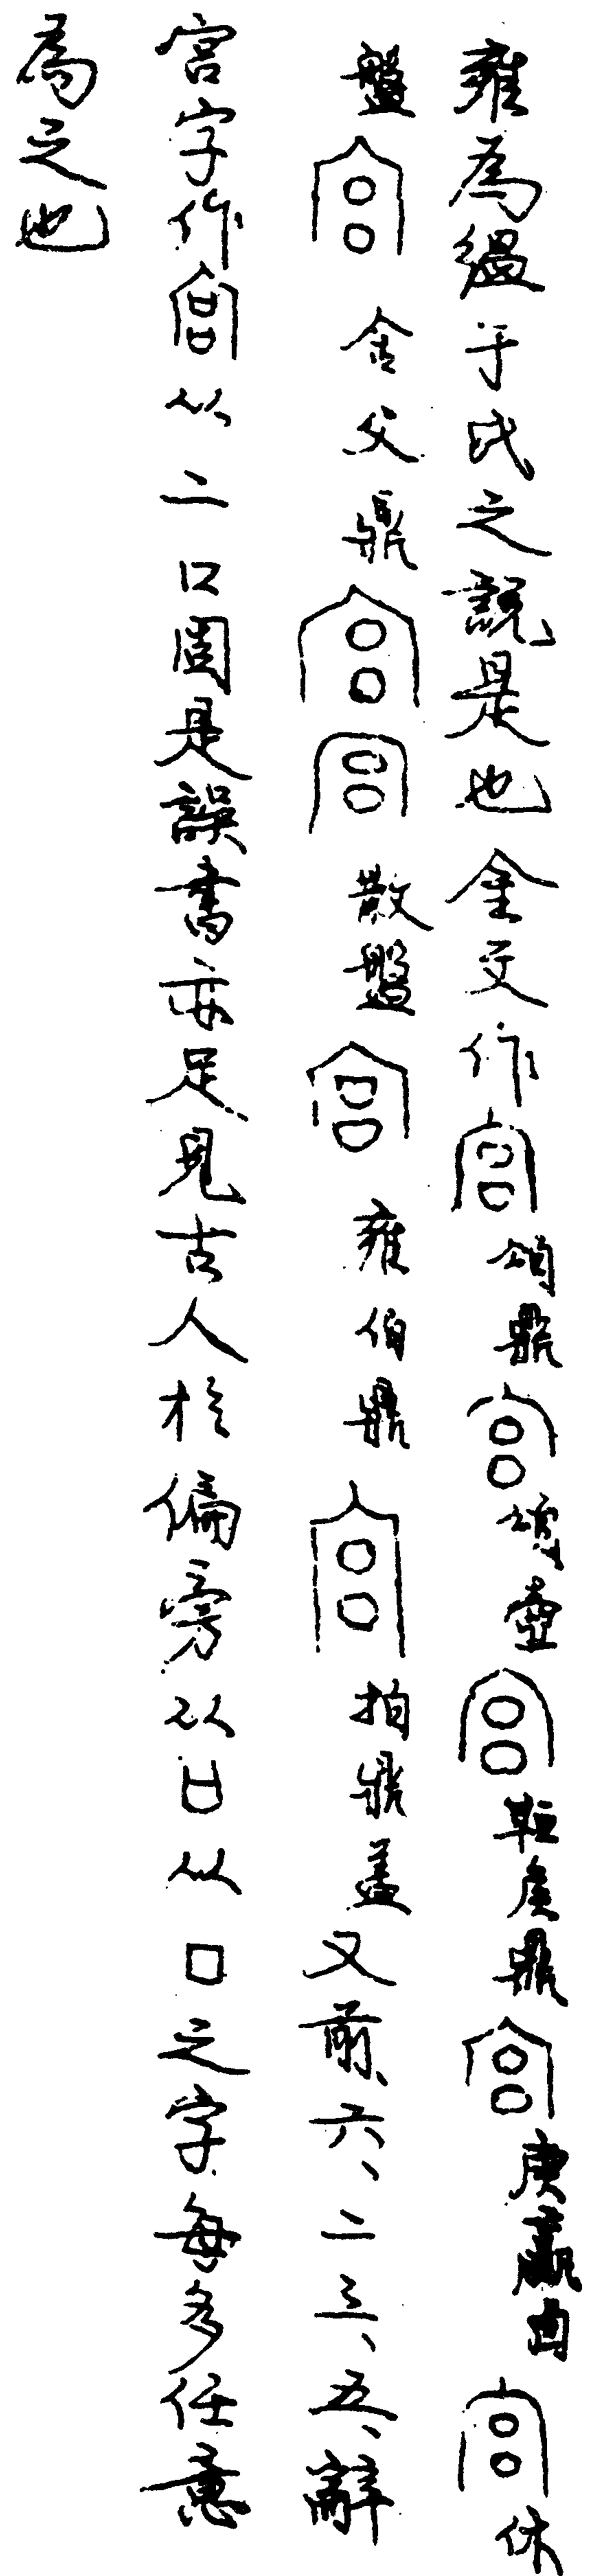 雍為于氏之說是也金文作宫頌鼎宫頌壺宫侯鼎宫庚嬴卣宫休
盤宫舍父鼎宫宫散盤宫雍伯鼎宫拍鼎蓋又前六、二三、五、辭
宮字作宫从二口固是誤書亦足見古人於偏旁从凵从口之字每多任意
為之也